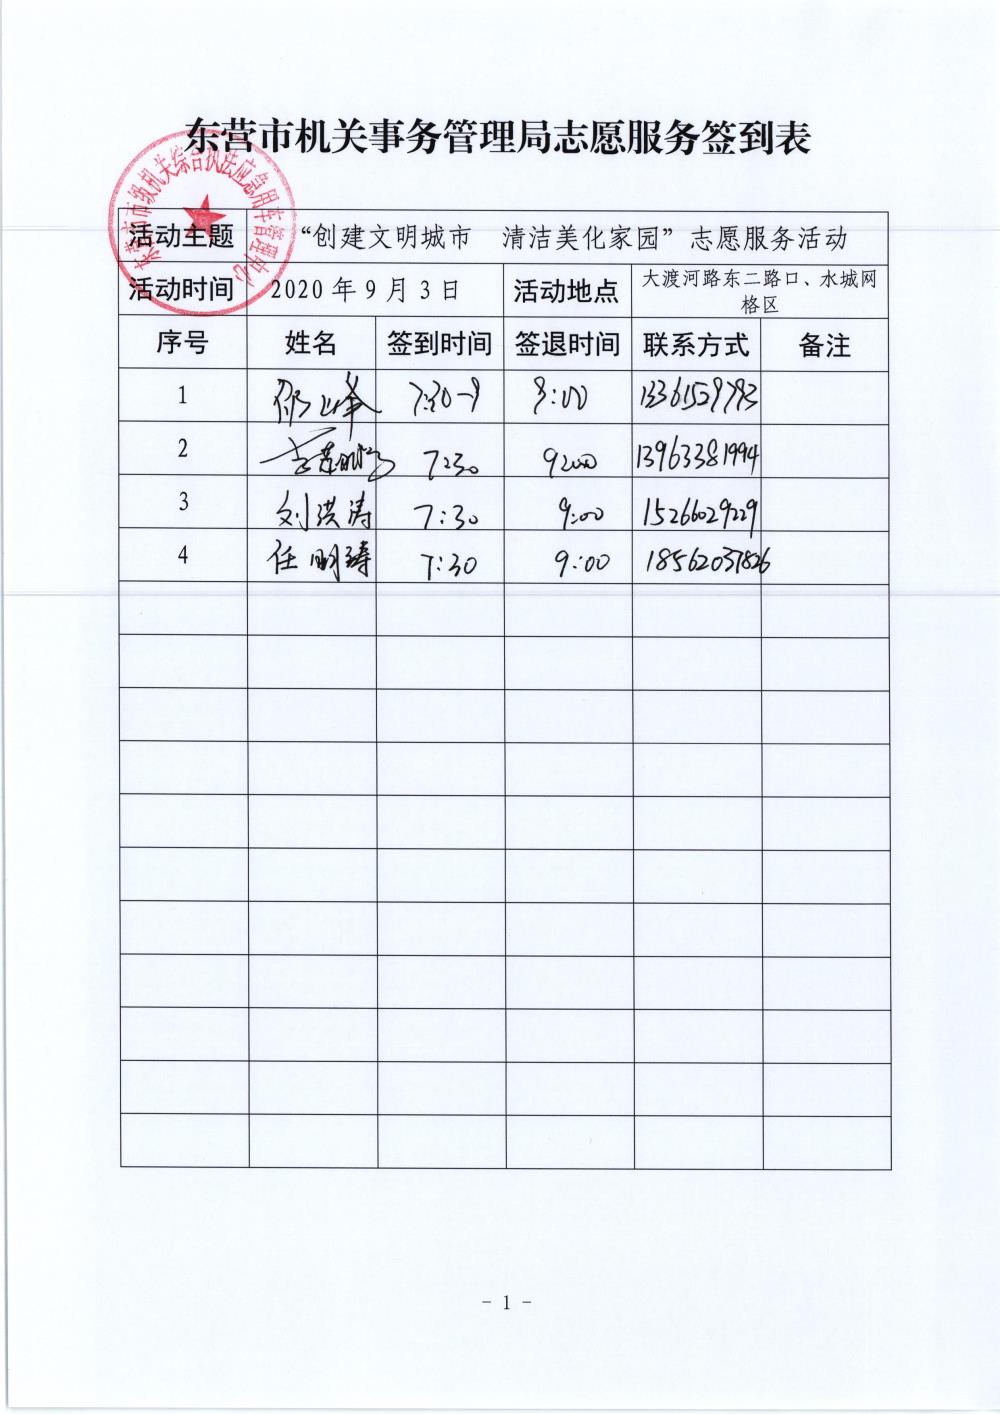 东营市机关事务管理局志愿服务签到表
东营市市级机关综合执法应急用车管理中心
活动主题 “创建文明城市 清洁美化家园”志愿服务活动
活动时间 2020年9月3日 活动地点 大渡河路东二路口、水城网
格区
序号 姓名 签到时间 签退时间 联系方式 备注
1 7:30-9 9:00 13361529793
2 7:30 9:00 13963381994
3 刘洪涛 7:30 9:00 15266029229
4 任明涛 7:30 9:00 18562037826
- 1 -